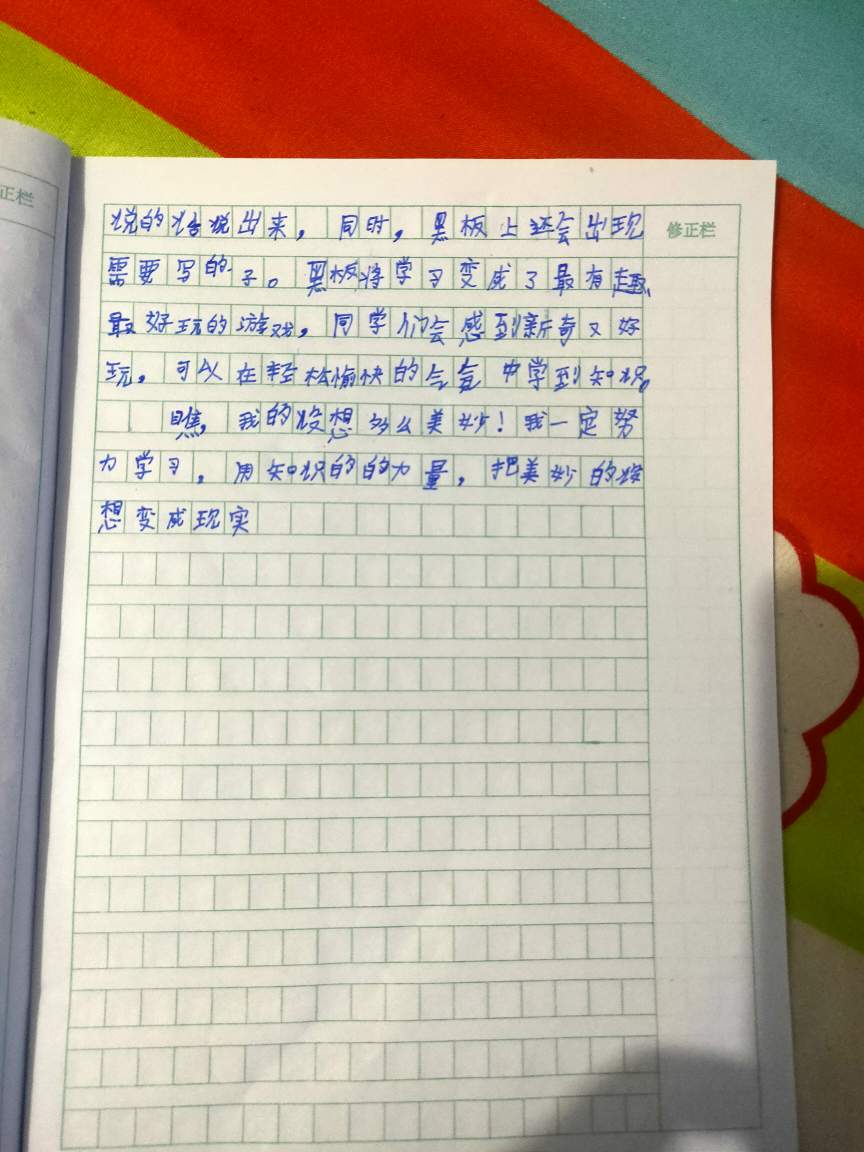 正栏
修正栏
说的话说出来，同时，黑板上还会出现
需要写的字。黑板将学习变成了最有趣、
最好玩的游戏，同学们会感到新奇又好
玩，可以在轻松愉快的气氛中学到知识。
瞧，我的设想多么美妙！我一定努
力学习，用知识的的力量，把美妙的设
想变成现实